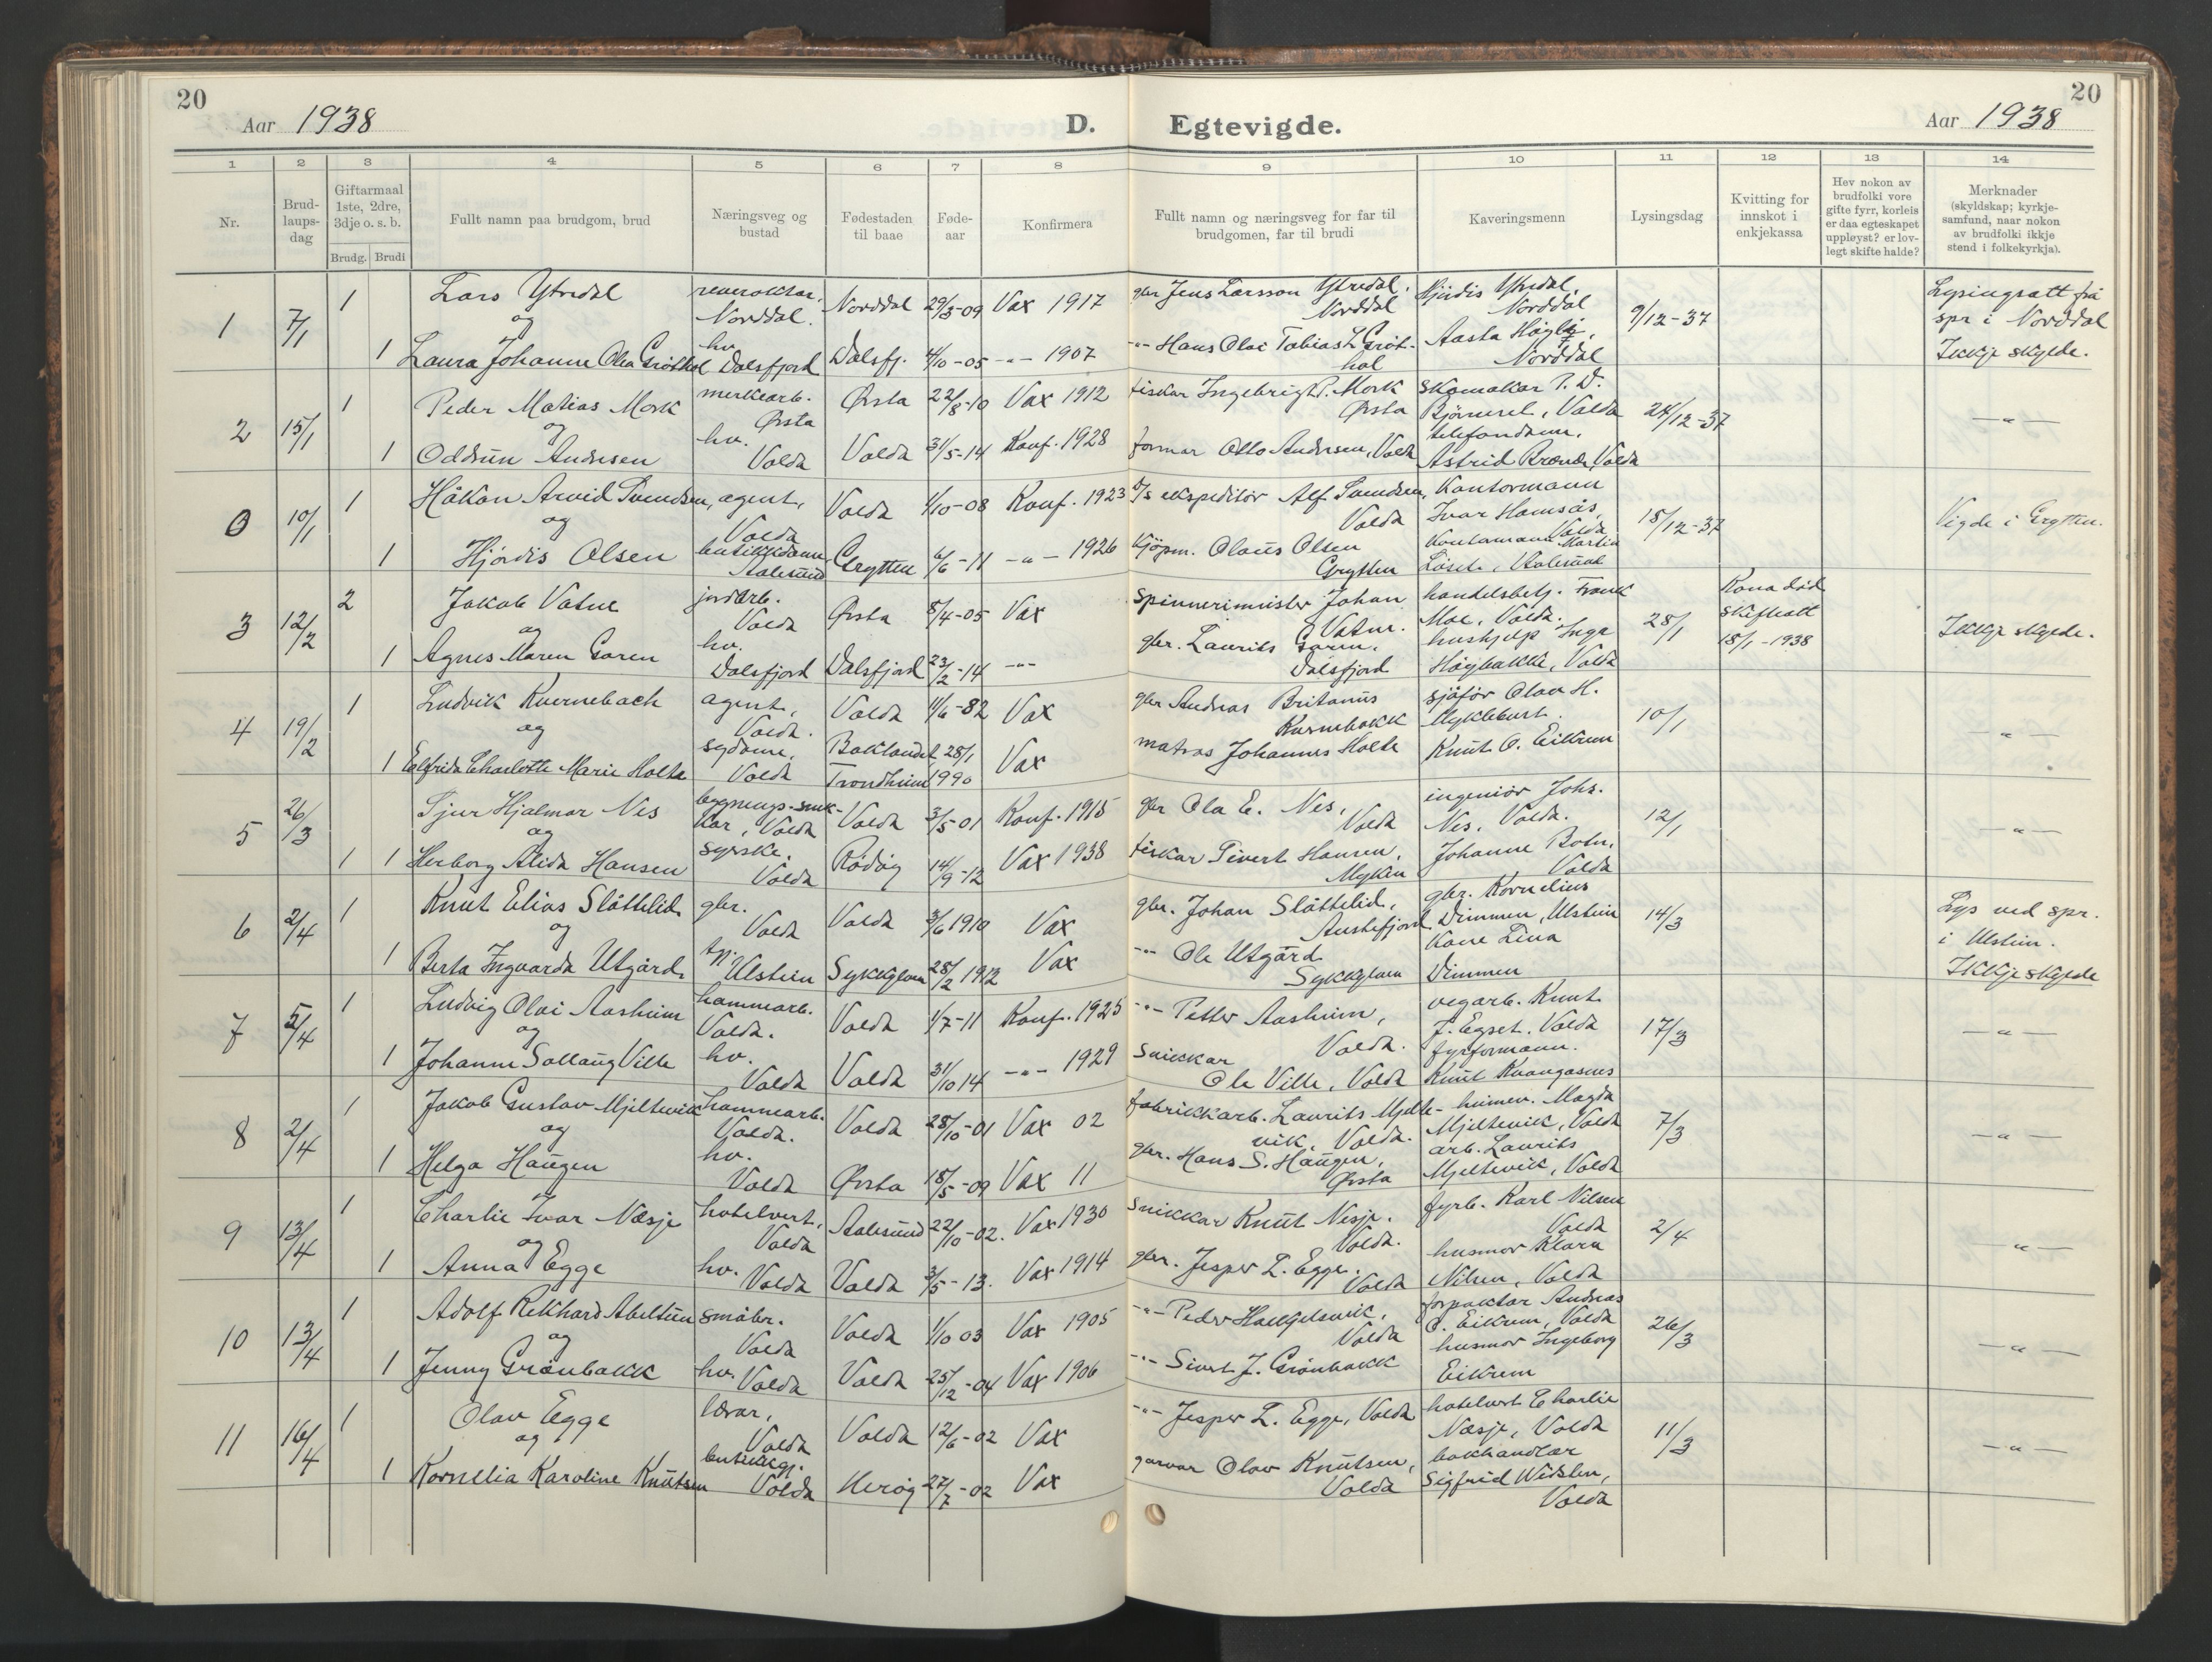 20
20
Aar 1938
D. Egtevigde.
Aar 1938
1 2 3 4 5 6 7 8 9 10 11 12 13 14
Nr.
Brud-
laups-
dag
Giftarmaal
1ste, 2dre,
3dje o. s. b.
Brudg. Brudi
Fullt namn paa brudgom, brud
Næringsveg og
bustad
Fødestaden
til baae
Føde-
aar
Konfirmera
Fullt namn og næringsveg for far til
brudgomen, far til brudi
Kaveringsmenn
Lysingsdag
Kvitting for
innskot i
enkjekassa
Hev nokon av
brudfolki vore
gifte fyrr, korleis
er daa egteskapet
uppløyst? er lov-
legt skifte halde?
Merknader
(skyldskap; kyrkje-
samfund, naar nokon
av brudfolki ikkje
stend i folkekyrkja).
1 7/1 1 Lars Ytredal Norddal 29/3-09 Vax 1917 gbr Jens Larsson Ytredal, Hjördis Ytredal, 9/12-37 Lysingsatt frå
og Norddal. Norddal Norddal spr i Norddal
1 Laura Johanne Olea Gröthol hv. Dalsfjord Dalsfj. 4/10-05 -"- 1907 -"- Hans Olai Tobias L Gröt- Aasta Höglig, Ikkje skylde.
hol Norddal
2 15/1 1 Peder Matias Mork merkearb. Ørsta 22/8-10 Vax 1912 fiskar Ingebrigt P. Mork skomakar P. D. 24/12-37 -"-
og Ørsta Ørsta Bjørneset, Volda
1 Oddrun Andresen hv. Volda Volda 31/5-14 Konf. 1928 formar Otto Andresen, Volda telefondame,
Astrid Brænde, Volda
0 10/1 1 Håkon Arvid Svendsen, agent, Volda 4/10-08 Konf. 1923 D/s ekspeditör Alf Svendsen, Kontormann 18/12-37 Vigde i Grytten.
og Volda Volda Ivar Hamsås, Volda
1 Hjördis Olsen butikkdame Aalesund Grytten 6/6-11 -"- 1926 kjöpm. Olaus Olsen Kontormann Martin
Grytten Löset, Aalesund
3 12/2 2 Jakob Vatne jordarb. Ørsta 8/4-05 Vax spinnerimeister Johan handelsbetj. Frank 28/1 Kona död Ikkje skylde.
og Volda Vatne. Moe, Volda. skifteatt
1 Agnes Maren Garen hv. Dalsfjord Dalsfjord 23/2-14 -"- gbr. Laurits Garen, hushjelp Inga 18/1-1938
Dalsfjord Högbakke, Volda
4 19/2 1 Ludvik Kvernebach agent, Volda 11/6-82 Vax gbr Andreas Britanus sjåför Olav H. 10/1 -"-
og Volda. Kvernebakk Myklebust.
1 Elfrida Charlotte Marie Holte sydame, Volda Baklandet Trondheim 28/1 1990 Vax matros Johannes Holte Knut O. Eikrem
5 26/3 1 Sjur Hjalmar Nes bygnings-snik- Volda 3/5-01 Konf. 1915 gbr Ola E. Nes, ingeniör Johs. 12/1 -"-
og kar, Volda Volda Nes, Volda.
1 1 Herborg Alida Hansen syerske, Volda Rödöy 14/9-12 Vax 1938 fiskar Sivert Hansen, Johanne Botn,
Myken Volda
6 2/4 1 Knut Elias Slåttelid gbr. Volda 3/6 1910 Vax gbr. Johan Slåttelid, gbr. Kornelius 14/3 Lys ved spr.
og Volda Austefjord Dimmen, Ulstein i Ulstein.
1 Berta Ingvarda Utgård tj. Ulstein Sykkylven 28/2 1912 Vax -"- Ole Utgård Kone Lina Ikkje skylde
Sykkylven Dimmen
7 5/4 1 Ludvig Olai Aasheim hammarb. Volda 1/7-11 Konf. 1925 -"- Petter Aasheim, vegarb. Knut 17/3 -"-
og Volda. Volda. J. Egset. Volda
1 Johanne Sollaug Ville hv. Volda Volda 31/10 14 -"- 1929 snikkar fyrformann.
Ole Ville, Volda Knut Kvangarsnes
8 2/4 1 Jakob Gustav Mjeltevik hammarb. Volda 28/10-01 Vax 02 fabrikkarb. Laurits Mjelte- heimev. Magda 7/3 -"-
og Volda. vik, Volda. Mjeltevik, Volda
1 Helga Haugen hv. Volda Ørsta 18/5-09 Vax 11 gbr. Hans S. Haugen, arb. Laurits
Ørsta Mjeltevik, Volda
9 13/4 1 Charlie Ivar Næsje hotelvert, Aalesund 22/10-02. Vax 1930 snikkar Knut Nesje. fyrb. Karl Nilsen 2/4 -"-
og Volda Volda. Volda
1 Anna Egge hv. Volda Volda 3/5-13. Vax 1914 gbr. Jesper L. Egge. husmor Klara
Volda Nilsen, Volda
10 13/4 1 Adolf Rekhard Abeltun småbr. Volda 1/10 03 Vax 1905 -"- Peder Haukjelsvik, forpaktar Andreas 26/3 -"-
og Volda Volda O. Eikrem, Volda
1 Jenny Grönbakk hv. Volda Volda 25/12-04 Vax 1906 -"- Sivert J. Grönbakk husmor Ingeborg
Eikrem
11 16/4 1 Olav Egge lærar, Volda 12/6-02 Vax -"- Jesper L. Egge, Volda hotelvert Charlie 11/3 -"-
og Volda Næsje, Volda
1 Kornelia Karoline Knutsen butikkgj. Volda Heröy 27/7-02 Vax garvar Olav Knutsen, bokhandlar
Volda Sigfrid Widslen,
Volda